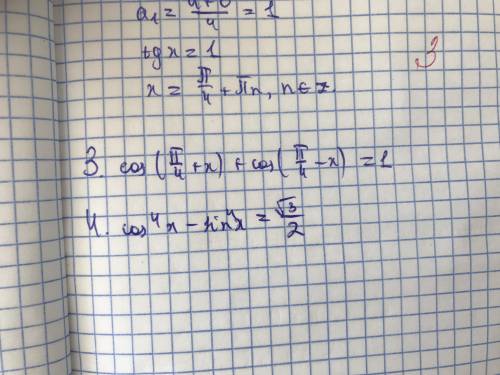 a₁ = (4+0)/4 = 1
tg x = 1
x = π/4 + πn, n ∈ z
3
3. cos(π/4 + x) + cos(π/4 − x) = 1
4. cos⁴x − sin⁴x = √3/2